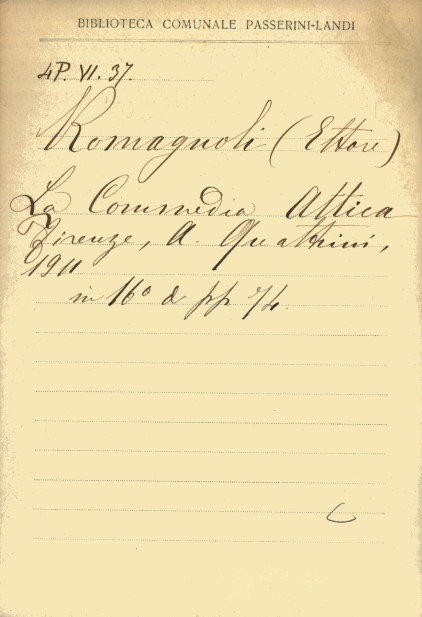 BIBLIOTECA COMUNALE PASSERINI-LANDI
4P. VI. 37.
Romagnoli (Ettore)
La Commedia Attica
Firenze, A. Quattrini,
1911
in 16° di pp 74.